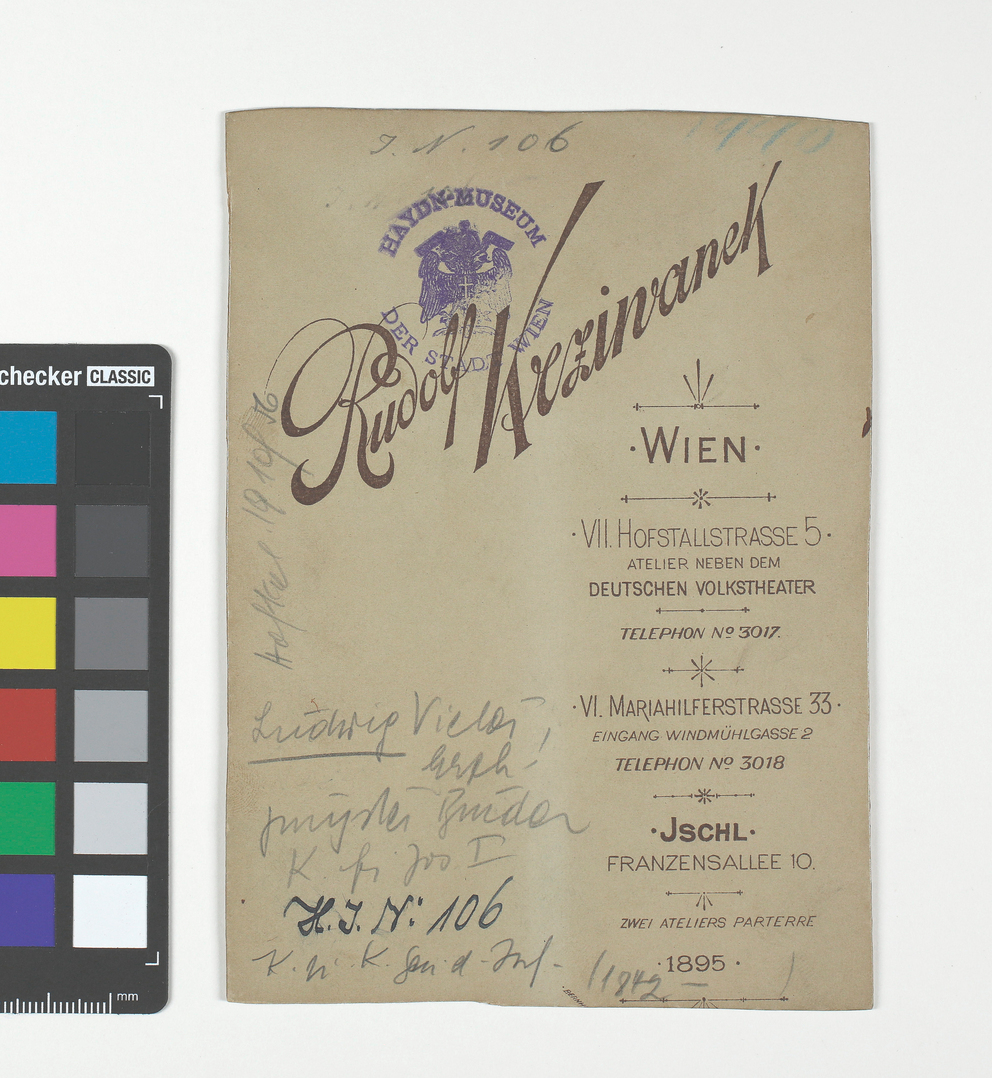 J. N. 106
HAYDN-MUSEUM
DER STADT WIEN
Rudolf Krziwanek
·WIEN·
·VII. HOFSTALLSTRASSE 5·
ATELIER NEBEN DEM
DEUTSCHEN VOLKSTHEATER
TELEPHON No 3017.
·VI. MARIAHILFERSTRASSE 33·
EINGANG WINDMÜHLGASSE 2
TELEPHON No 3018
·JSCHL·
FRANZENSALLEE 10.
ZWEI ATELIERS PARTERRE
·1895·
Ludwig Victor,
Erzh.
jüngster Bruder
K. Fr. Jos. I
H. J. No: 106
K. u. K. Gen. d. Inf.
(1842 – )
checker CLASSIC
mm